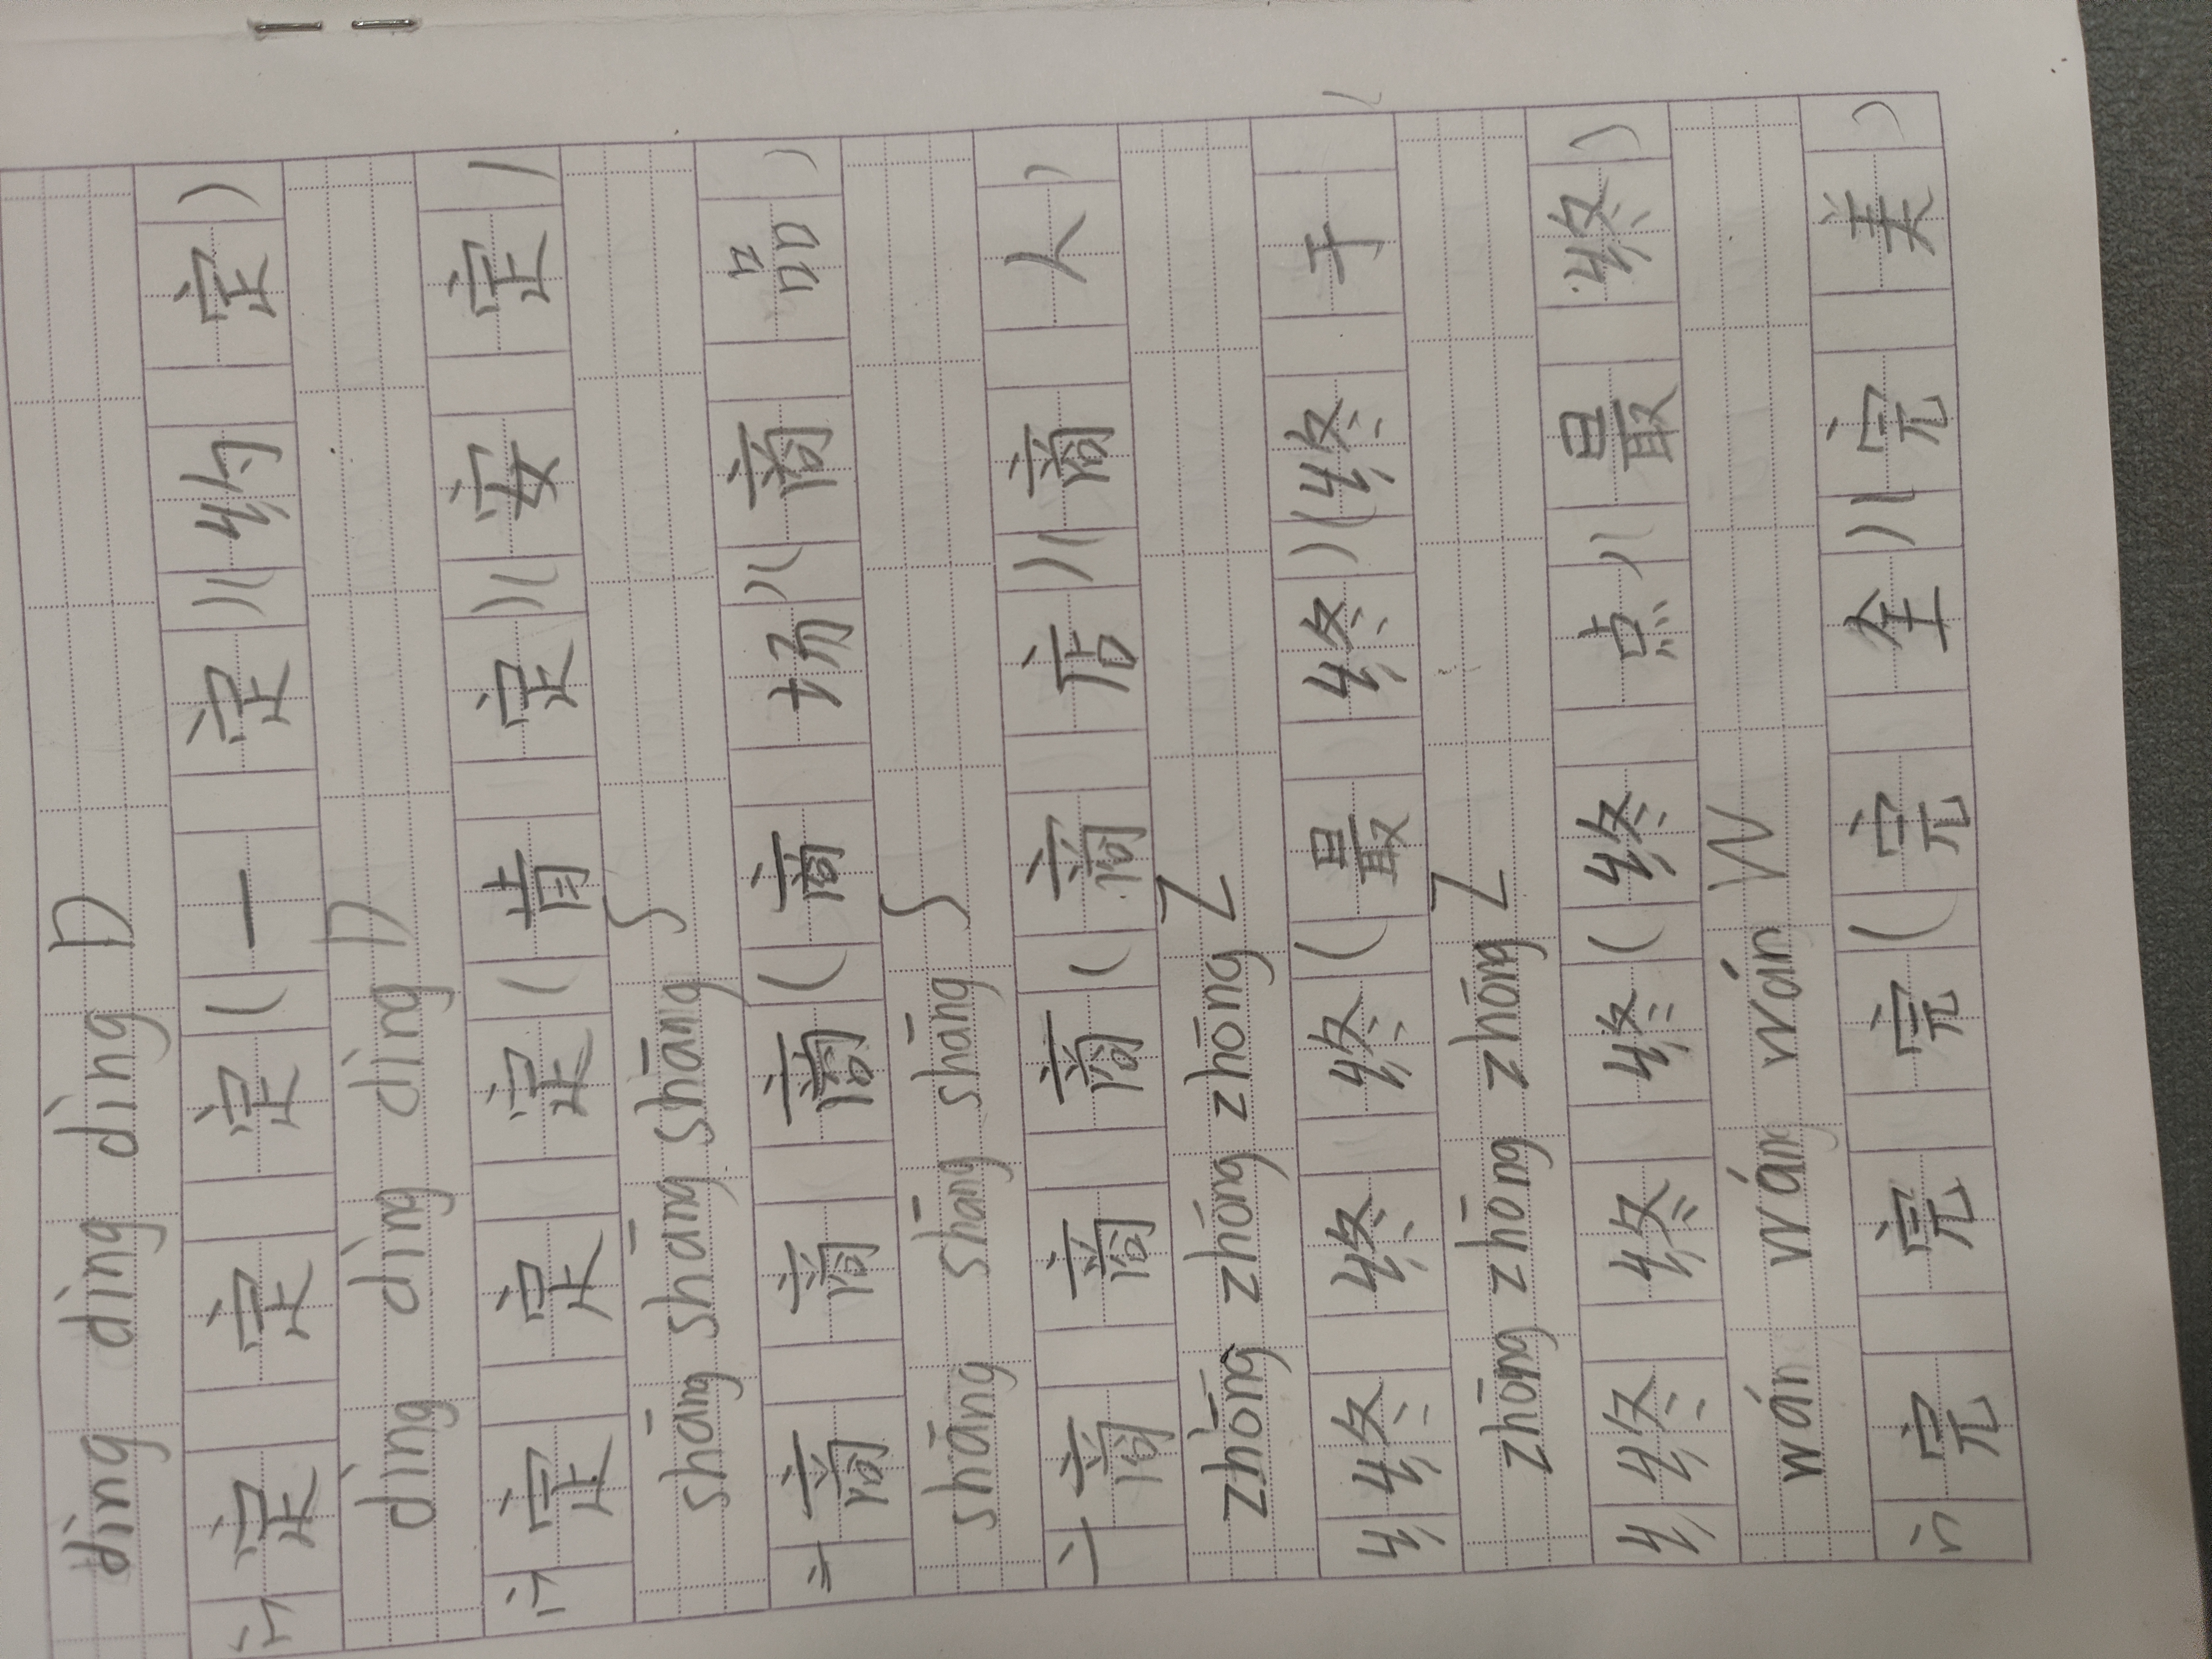 dìng dìng dìng D
宀定定定(一定)(约定)
dìng dìng dìng D
宀定定定(肯定)(安定)
shāng shāng shāng S
亠商商商(商场)(商品)
shāng shāng shāng S
亠商商商(商店)(商人)
zhōng zhōng zhōng Z
纟终终终(最终)(终于)
zhōng zhōng zhōng Z
纟终终终(终点)(最终)
wán wán wán W
宀完完完(完全)(完美)